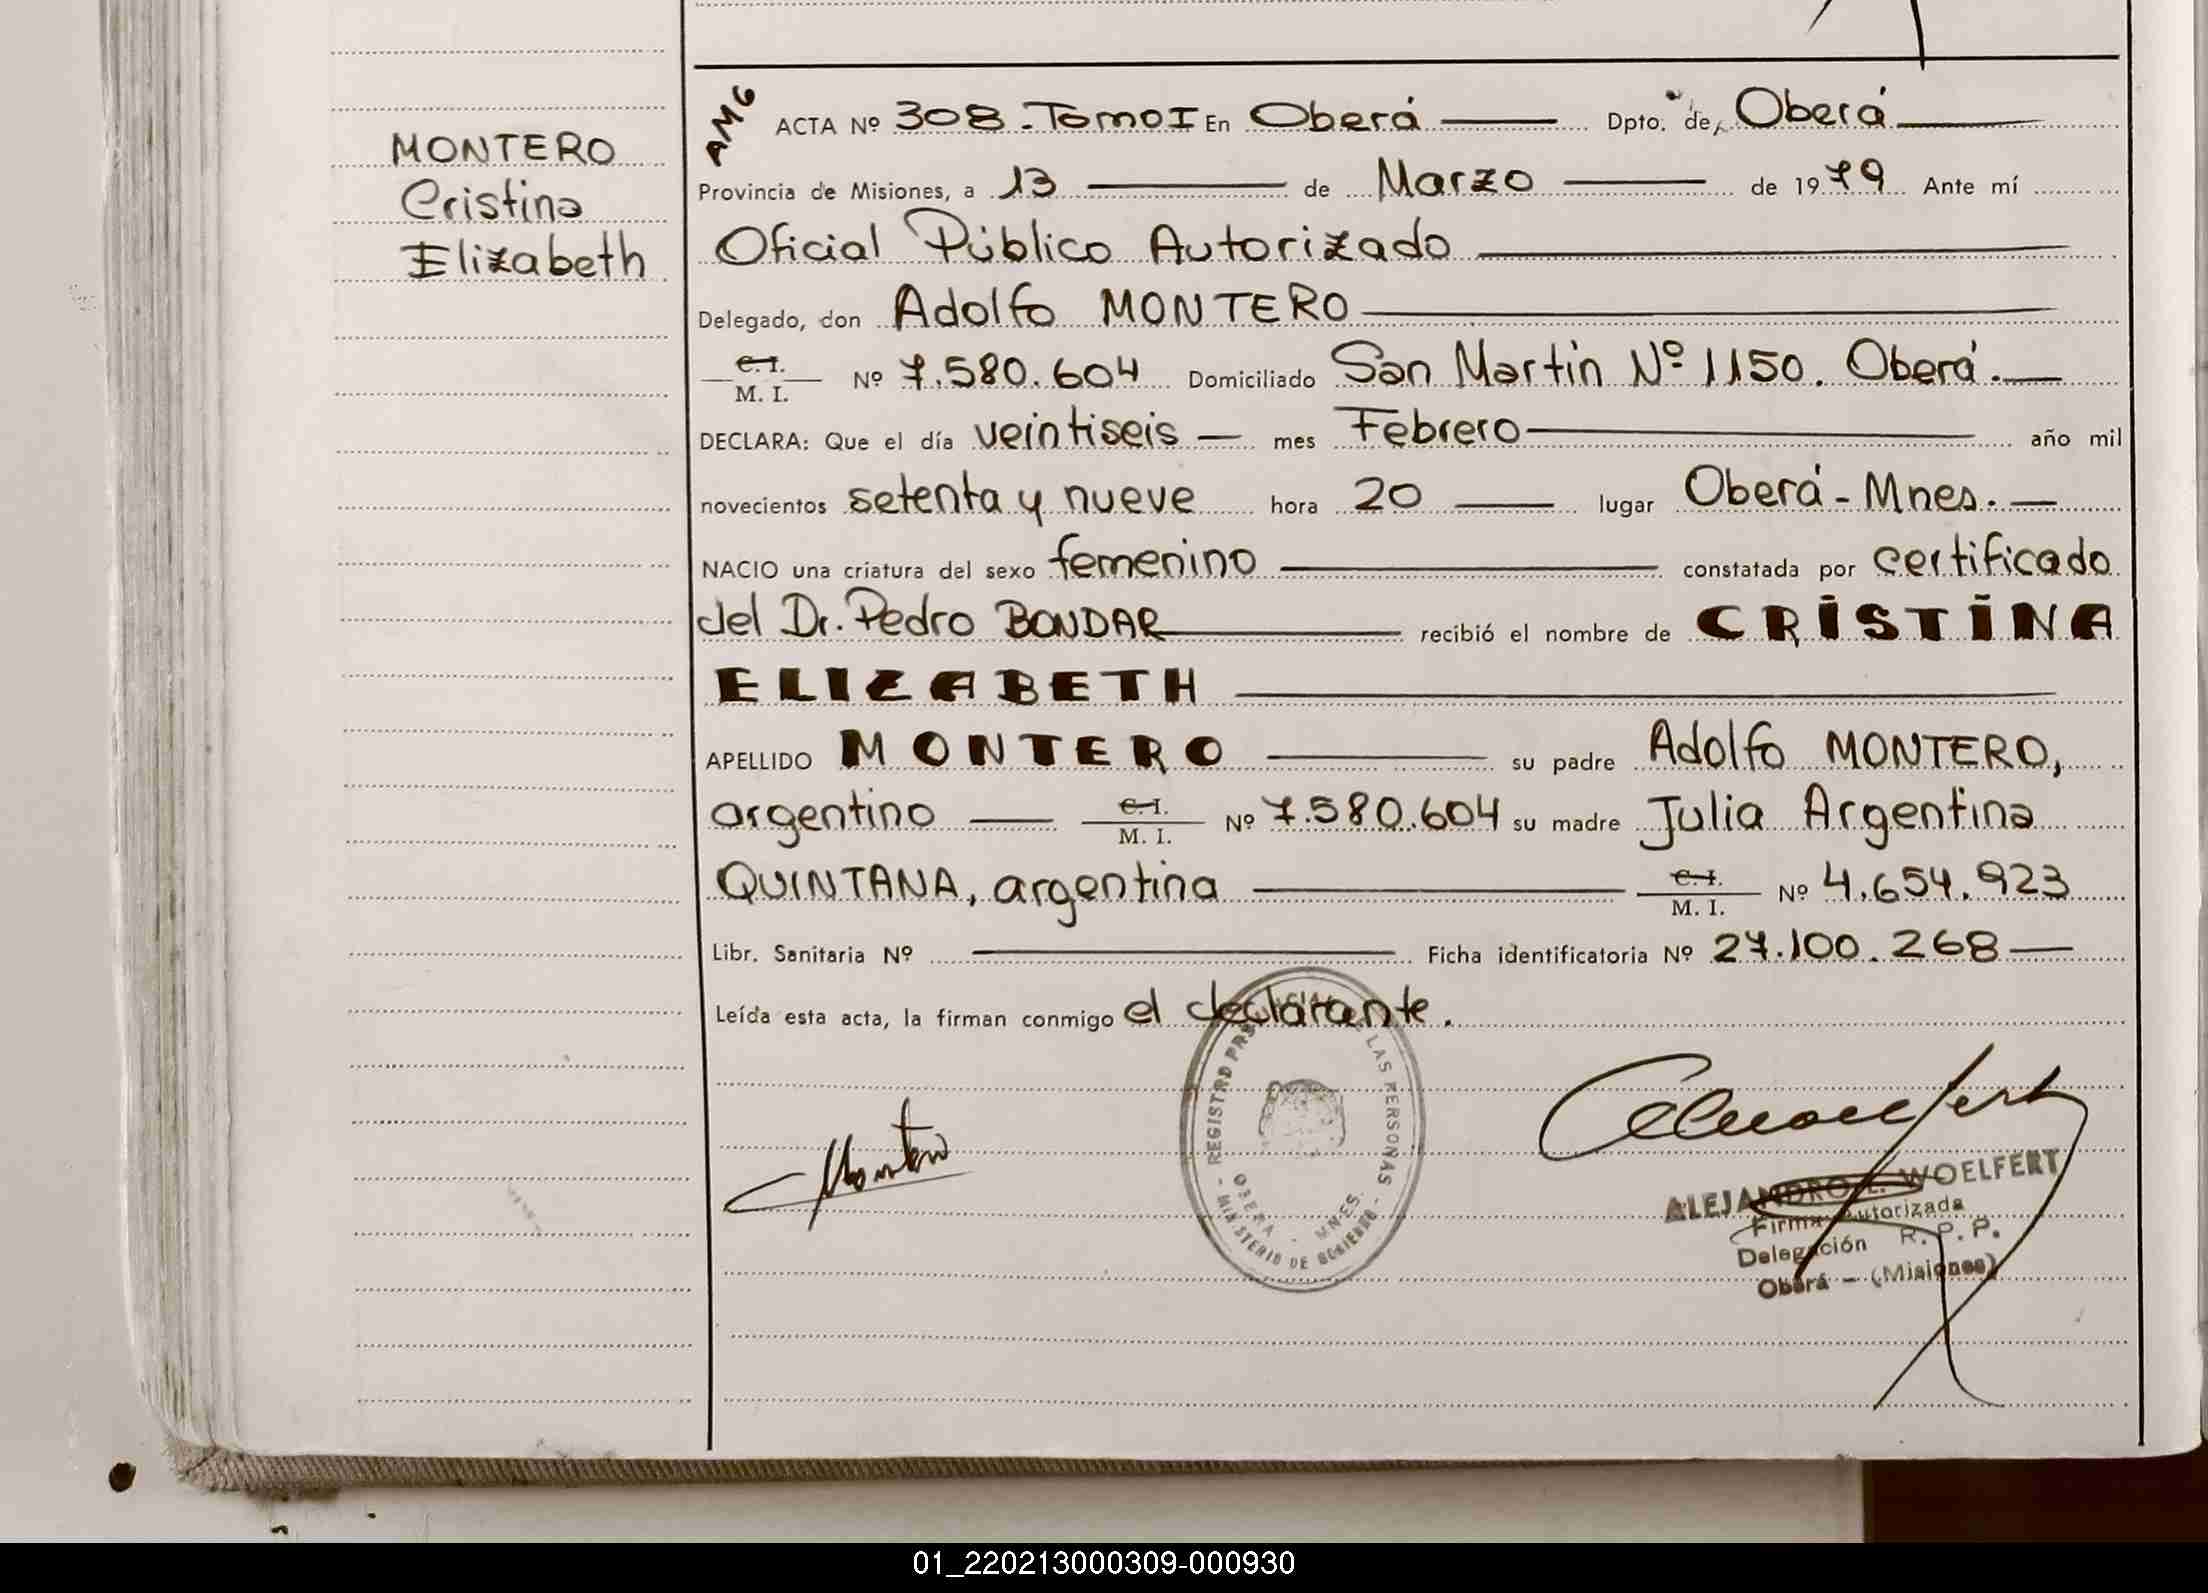 MONTERO
Cristina
Elizabeth
AMG
ACTA Nº 308.Tomo I En Oberá Dpto. de Oberá
Provincia de Misiones, a 13 de Marzo de 1979 Ante mí
Oficial Público Autorizado
Delegado, don Adolfo MONTERO
C. I.
M. I. Nº 7.580.604 Domiciliado San Martín Nº 1150. Oberá.
DECLARA: Que el día veintiseis mes Febrero año mil
novecientos setenta y nueve hora 20 lugar Oberá - Mnes.
NACIO una criatura del sexo femenino constatada por certificado
del Dr. Pedro BONDAR recibió el nombre de CRISTINA
ELIZABETH
APELLIDO MONTERO su padre Adolfo MONTERO,
argentino C. I. M. I. Nº 7.580.604 su madre Julia Argentina
QUINTANA, argentina C. I. M. I. Nº 4.654.923
Libr. Sanitaria Nº Ficha identificatoria Nº 27.100.268
Leída esta acta, la firman conmigo el declarante.
Montero
REGISTRO LAS PERSONAS
OBERA - MNES.
MINISTERIO DE GOBIERNO
ALEJANDRO L. WOELFERT
Firma Autorizada
Delegación R. P. P.
Oberá - (Misiones)
01_220213000309-000930